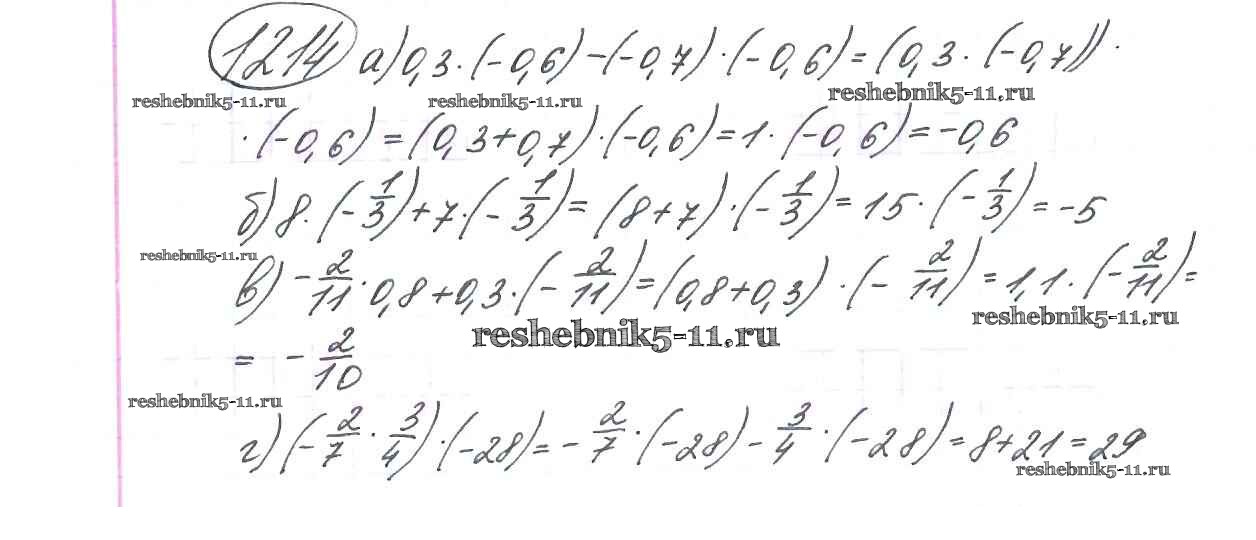 1214 а) 0,3 · (-0,6) - (-0,7) · (-0,6) = (0,3 · (-0,7)) ·
reshebnik5-11.ru reshebnik5-11.ru reshebnik5-11.ru
· (-0,6) = (0,3+0,7) · (-0,6) = 1 · (-0,6) = -0,6
б) 8 · (-1/3) + 7 · (-1/3) = (8+7) · (-1/3) = 15 · (-1/3) = -5
reshebnik5-11.ru
в) -2/11 · 0,8 + 0,3 · (-2/11) = (0,8+0,3) · (-2/11) = 1,1 · (-2/11) =
reshebnik5-11.ru reshebnik5-11.ru
= -2/10
reshebnik5-11.ru
г) (-2/7 · 3/4) · (-28) = -2/7 · (-28) - 3/4 · (-28) = 8+21 = 29
reshebnik5-11.ru